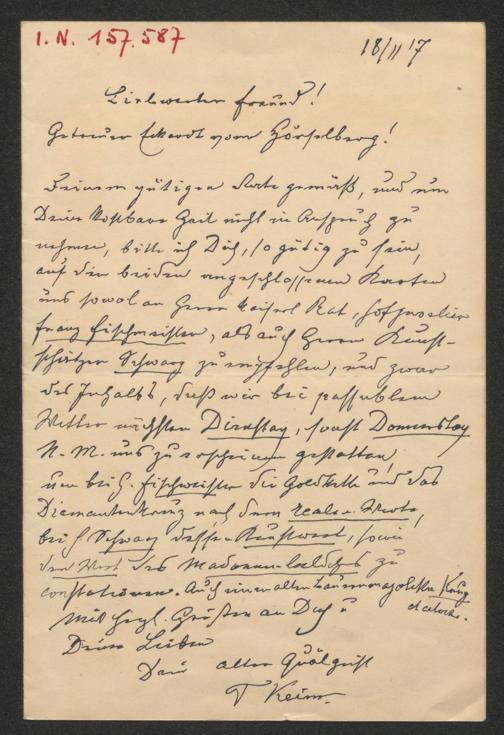 I.N. 157.587
18/11 '7
Liebwerter Freund!
Getreuer Eckardt vom Hörselberg!
Deinem gütigen Rate gemäß, und um
Deine kostbare Zeit nicht in Anspruch zu
nehmen, bitte ich Dich, so gütig zu sein,
auf den beiden angeschlossenen Karten
uns sowol an Herrn Kaiserl Rat, Hofjuwelier
Franz Fischmeister, als auch Herrn Kunst-
schätzer Schwarz zu empfehlen, und zwar
des Inhalts, daß wir bei passablem
Wetter nächsten Dienstag, sonst Donnerstag
N. M. uns zu erscheinen gestatten
um bei H. Fischmeister die Goldkette und das
Diamantenkreuz nach dem realen Werte,
bei H Schwarz dessen Kunstwert, sowie
den Wert des Madonnenbildes zu
constatieren. Auch einen alten Krug
Mit herzl. Grüßen an Dich u
Deine Lieben
Dein alter Quälgeist
F Keim